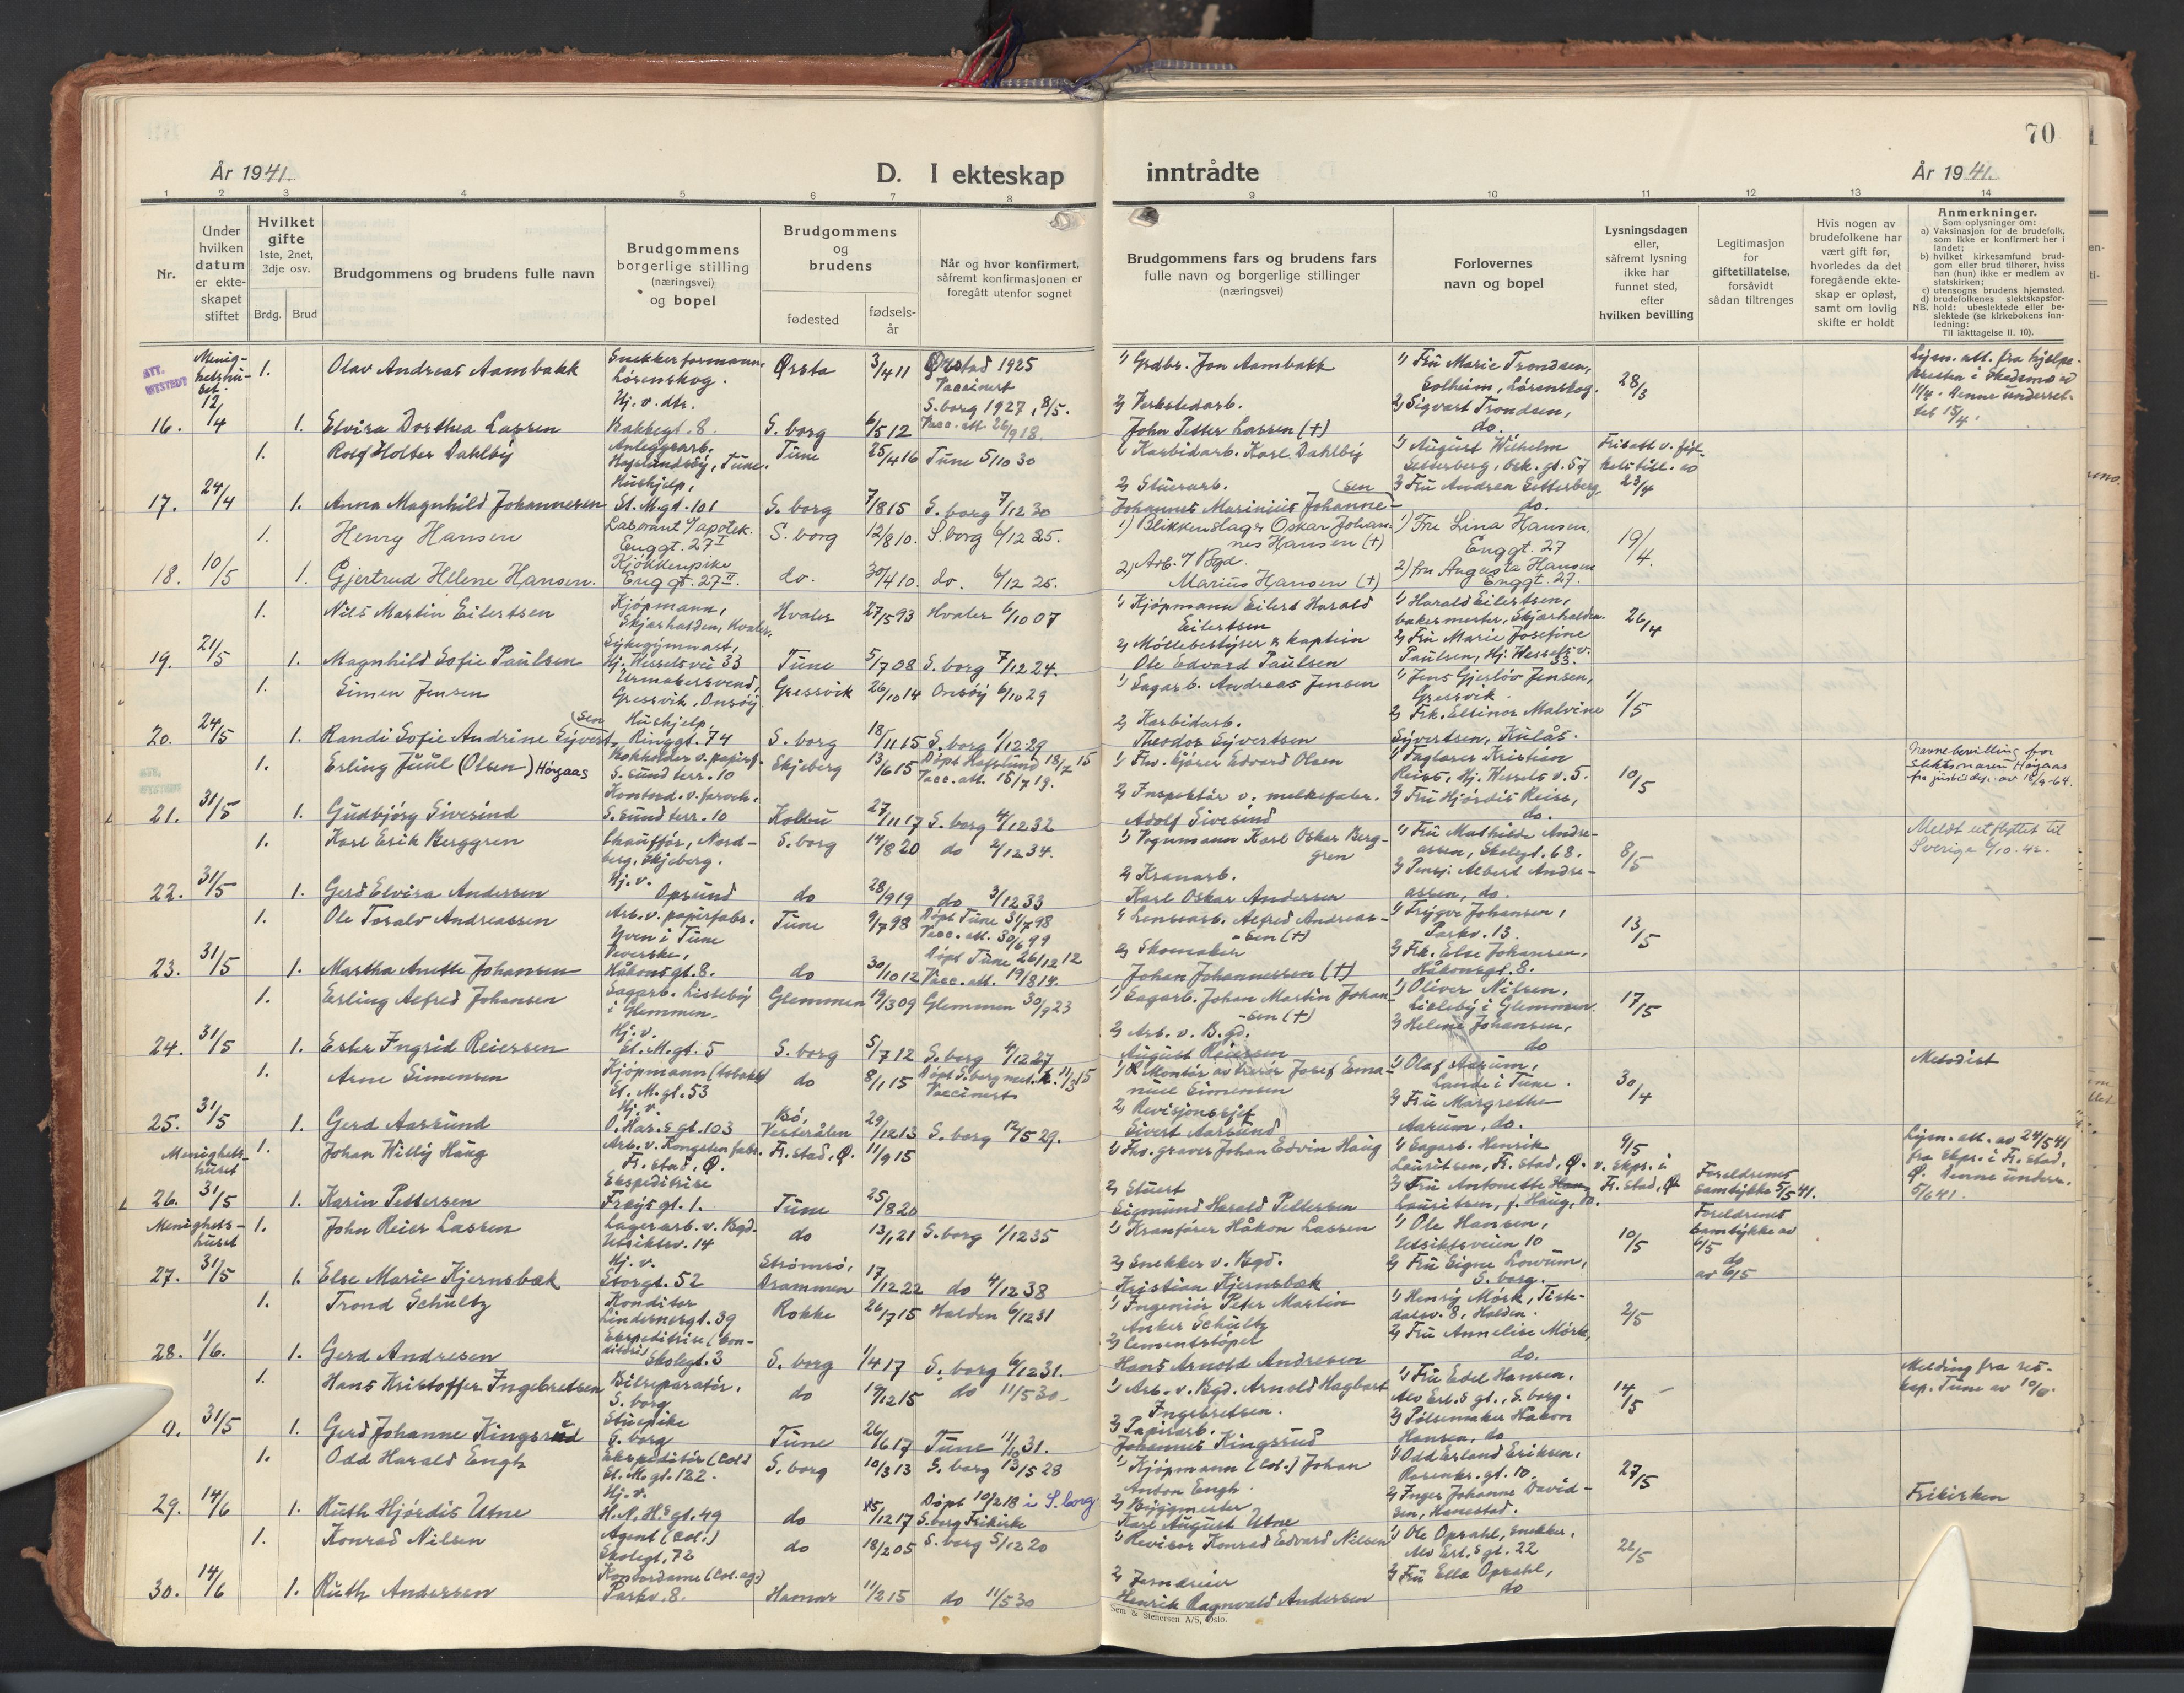 70
År 1941.
D. I ekteskap inntrådte
År 1941.
1 2 3 4 5 6 7 8 9 10 11 12 13 14
Nr.
Under hvilken datum er ekteskapet stiftet
Hvilket gifte 1ste, 2net, 3dje osv.
Brdg. Brud
Brudgommens og brudens fulle navn
Brudgommens borgerlige stilling (næringsvei) og bopel
Brudgommens og brudens
fødested
fødselsår
Når og hvor konfirmert, såfremt konfirmasjonen er foregått utenfor sognet
Brudgommens fars og brudens fars fulle navn og borgerlige stillinger (næringsvei)
Forlovernes navn og bopel
Lysningsdagen eller, såfremt lysning ikke har funnet sted, efter hvilken bevilling
Legitimasjon for giftetillatelse, forsåvidt sådan tiltrenges
Hvis nogen av brudefolkene har vært gift før, hvorledes da det foregående ekteskap er opløst, samt om lovlig skifte er holdt
Anmerkninger.
Som oplysninger om:
a) Vaksinasjon for de brudefolk, som ikke er konfirmert her i landet;
b) hvilket kirkesamfund brudgom eller brud tilhører, hviss han (hun) ikke er medlem av statskirken;
c) utensogns brudens hjemsted.
d) brudefolkenes slektskapsforhold: ubeslektede eller beslektede (se kirkebokens innledning:
NB. Til iakttagelse II. 10).
ATT. UTSTEDT
Menighetshuset.
1. Olav Andreas Aambakk Snekkerformann, Lørenskog. Ørsta 3/4 11 Ørstad 1925 Vaccinert 1) Grdbr. Jon Aambakk 1) Fru Marie Trondsen, Solheim, Lørenskog. 28/3
16. 12/4 1. Elvira Dorthea Lassen Hj. v. dtr. Bakkegt. 8. S. borg 6/5 12 S. borg 1927, 8/5. Vacc. att. 26/9 18. 2) Verkstedarb. John Petter Lassen (+) 2) Sigvart Trondsen, do.
Lysn. att. fra hjelpepresten i Skedsmo 11/4. Denne underrettet 15/4.
1. Rolf Holter Dahlby Anleggsarb. Hafslundsøy, Tune. Tune 25/4 16 Tune 5/10 30 1) Karbidarb. Karl Dahlby 1) August Wilhelm Setterberg, Osk. gt. 57
17. 24/4 1. Anna Magnhild Johannesen Hushjelp, St. M. gt. 101 S. borg 7/8 15 S. borg 7/12 30 2) Stuerarb. Johannes Marinius Johannesen 2) Fru Andrea Setterberg do. 23/4
1. Henry Hansen Laborant v/ apotek. Enggt. 27 I S. borg 12/8 10. S. borg 6/12 25. 1) Blikkenslager Oskar Johannes Hansen (+) 1) Fru Lina Hansen, Enggt. 27 19/4.
18. 10/5 1. Gjertrud Helene Hansen. Kjøkkenpike Enggt. 27 II. do. 30/4 10. do. 6/12 25. 2) Arb. v/ Bgd. Marius Hansen (+) 2) fru Augusta Hansen Enggt. 27.
1. Nils Martin Eilertsen Kjøpmann, Skjærhalden, Hvaler. Hvaler 27/5 93 Hvaler 6/10 07 1) Kjøpmann Eilert Harald Eilertsen 1) Harald Eilertsen, bakermester, Skjærhalden. 26/4
19. 21/5 1. Magnhild Sofie Paulsen Sykegymnast, Hj. Wesselsvei 33 Tune 5/7 08 S. borg 7/12 24. 2) Møllebestyrer & kaptein Ole Edvard Paulsen 2) Fru Marie Josefine Paulsen, Hj. Wessels v. 33.
1. Simen Jensen Urmakersvend, Gressvik, Onsøy Gressvik 26/10 14 Onsøy 6/10 29 1) Sagarb. Andreas Jensen 1) Jens Gjerløv Jensen, Gressvik. 1/5
20. 24/5 1. Randi Sofie Andrine Syvertsen Hushjelp, Ringgt. 74 S. borg 18/11 15 S. borg 1/12 29 2) Karbidarb. Theodor Syvertsen 2) Frk. Ellinor Malvine Syvertsen, Kulås.
1. Erling Juul (Olsen) Høgaas Bokholder v. papirf. S. sund terr. 10 Skjeberg 13/6 15 Døpt Hafslund 18/7 15 Vacc. att. 15/7 19. 1) Fhv. kjører Edvard Olsen 1) Faglærer Kristian Reiss, Hj. Wessels v. 5. 10/5
Navnebevilling for slektsnavnet Høgaas fra justisdep. av 18/9-64.
21. 31/5 1. Gudbjørg Sivesind Kontord. v. forech. S. sund terr. 10 Kolbu 27/11 17 S. borg 4/12 32 2) Inspektør v. melkefabr. Adolf Sivesind 2) Fru Hjørdis Reiss, do.
1. Karl Erik Berggren Chauffør, Nordberg, Skjeberg. S. borg 14/8 20 do 2/12 34. 1) Vognmann Karl Oskar Berggren 1) Fru Mathilde Andreassen, Skolegt. 68. 8/5
Meldt utflyttet til Sverige 6/10. 42.
22. 31/5 1. Gerd Elvira Andersen Hj. v. Opsund do 28/9 19 do 3/12 33 2) Kranarb. Karl Oskar Andersen 2) Pensj. Albert Andreassen, do.
1. Ole Toralv Andreassen Arb. v. papirfabr. Yven i Tune Tune 9/7 98 Døpt Tune 31/7 98 Vacc. att. 30/6 99 1) Lensearb. Alfred Andreassen (+) 1) Trygve Johansen, Parkv. 13. 13/5
23. 31/5 1. Martha Anette Johansen Veverske, Håkonsgt. 8. do 30/10 12 Døpt Tune 26/12 12 Vacc. att. 19/8 14. 2) Skomaker Johan Johannessen (+) 2) Frk. Else Johansen, Håkonsgt. 8.
1. Erling Alfred Johansen Sagarb. Lisleby i Glemmen. Glemmen 19/3 09 Glemmen 30/9 23 1) Sagarb. Johan Martin Johansen (+) 1) Oliver Nilsen, Lisleby i Glemmen. 17/5
24. 31/5 1. Ester Ingrid Reiersen Hj. v. St. M. gt. 5 S. borg 5/7 12 S. borg 4/12 27 2) Arb. v. B. gd. August Reiersen 2) Helene Johansen, do
1. Arne Simensen Kjøpmann (tobakk) St. M. gt. 53 do 8/1 15 Døpt S. borg met. k. 11/3 15 Vaccinert 1) Montør Josef Emanuel Simensen 1) Olaf Aarum, Lande i Tune. 30/4 Metodist
25. 31/5 1. Gerd Aarsund Hj. v. O. Har. s gt. 103 Bø, Vesterålen 29/12 13 S. borg 12/5 29. 2) Revisjonssjef Sivert Aarsund 2) Fru Margrethe Aarum, do.
Menighetshuset 1. Johan Willy Haug Arb. v. Kongsten fabr. Fr. stad, Ø. Fr. stad, Ø. 11/9 15 1) Fhv. graver Johan Edvin Haug 1) Sagarb. Henrik Lauritsen, Fr. stad, Ø. 9/5 v. skpr. i Fr. stad, Ø
Lysn. att. av 24/5 41 fra skpr. i Fr. stad, Ø. Denne underr. 5/6 41.
26. 31/5 1. Karin Pettersen Ekspeditrise Frøysgt. 1. Tune 25/8 20 2) Stuert Sigmund Harald Pettersen 2) Fru Antonette Lauritsen, f. Haug, do. Foreldrenes samtykke 5/5 41.
Menighetshuset 1. John Reier Lassen Lagerarb. v. Bgd. Utsiktsv. 14 do 13/1 21 S. borg 1/12 35 1) Kranfører Håkon Lassen 1) Ole Hansen, Utsiktsveien 10 10/5 Foreldrenes samtykke av 6/5
27. 31/5 1. Else Marie Kjernsbæk Hj. v. Storgt. 52 Strømsø, Drammen 17/12 22 do 4/12 38 2) Snekker v. Bgd. Kristian Kjernsbæk 2) Fru Signe Lowum, S. borg. do av 6/5
1. Trond Schultz Konditor Lindernesgt. 39 Rokke 26/7 15 Halden 6/12 31 1) Ingeniør Peter Martin Anker Schultz 1) Henry Mørk, Tistedalsv. 8, Halden. 2/5
28. 1/6. 1. Gerd Andresen Ekspeditrise (konditori) Skolegt. 3 S. borg 1/4 17 S. borg 6/12 31. 2) Cementstøper Hans Arnold Andresen 2) Fru Annelise Mørk, do.
1. Hans Kristoffer Ingebretsen Bilreparatør, S. borg do 19/12 15 do 11/5 30 1) Arb. v. Bgd. Arnold Hagbart Ingebretsen. 1) Fru Edel Hansen, Alv Erl. s gt., S. borg. 14/5
Melding fra reskap. Tune av 10/6.
0. 31/5 1. Gerd Johanne Kingsrud Stuepike S. borg Tune 26/6 17 Tune 11/10 31. 2) Papirarb. Johannes Kingsrud 2) Pølsemaker Håkon Hansen, do
1. Odd Harald Engh Ekspeditør (Col.) St. M. gt. 122. S. borg 10/3 13 S. borg 13/5 28 1) Kjøpmann (Col.) Johan Anton Engh. 1) Odd Erland Eriksen, Rosenkr. gt. 10. 27/5
29. 14/6 1. Ruth Hjørdis Utne Hj. v. H. N. H. s gt. 49 do 15/12 17 Døpt 10/2 18 i S. borg S. borg Frikirke 2) Byggmester Karl August Utne 2) Inger Johanne Davidsen, Hanestad. Frikirken
1. Konrad Nilsen Agent (Col.) Skolegt. 72 do 18/2 05 S. borg 5/12 20 1) Revisor Konrad Edvard Nilsen 1) Ole Opsahl, snekker, Alv Erl. s gt. 22 28/5
30. 14/6 1. Ruth Andersen Kontordame (Col. ag.) Parkv. 8. Hamar 11/2 15 do 11/5 30 2) Jerndreier Henrik Ragnvald Andersen 2) Fru Ella Opsahl, do
Sem & Stenersen A/S, Oslo.